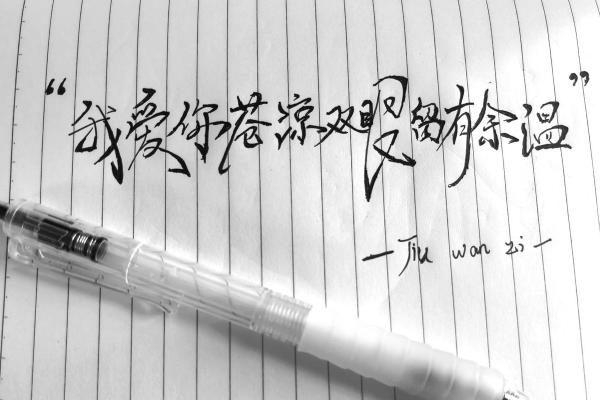 “我爱你苍凉双眼留有余温”
—Jiu wan zi—